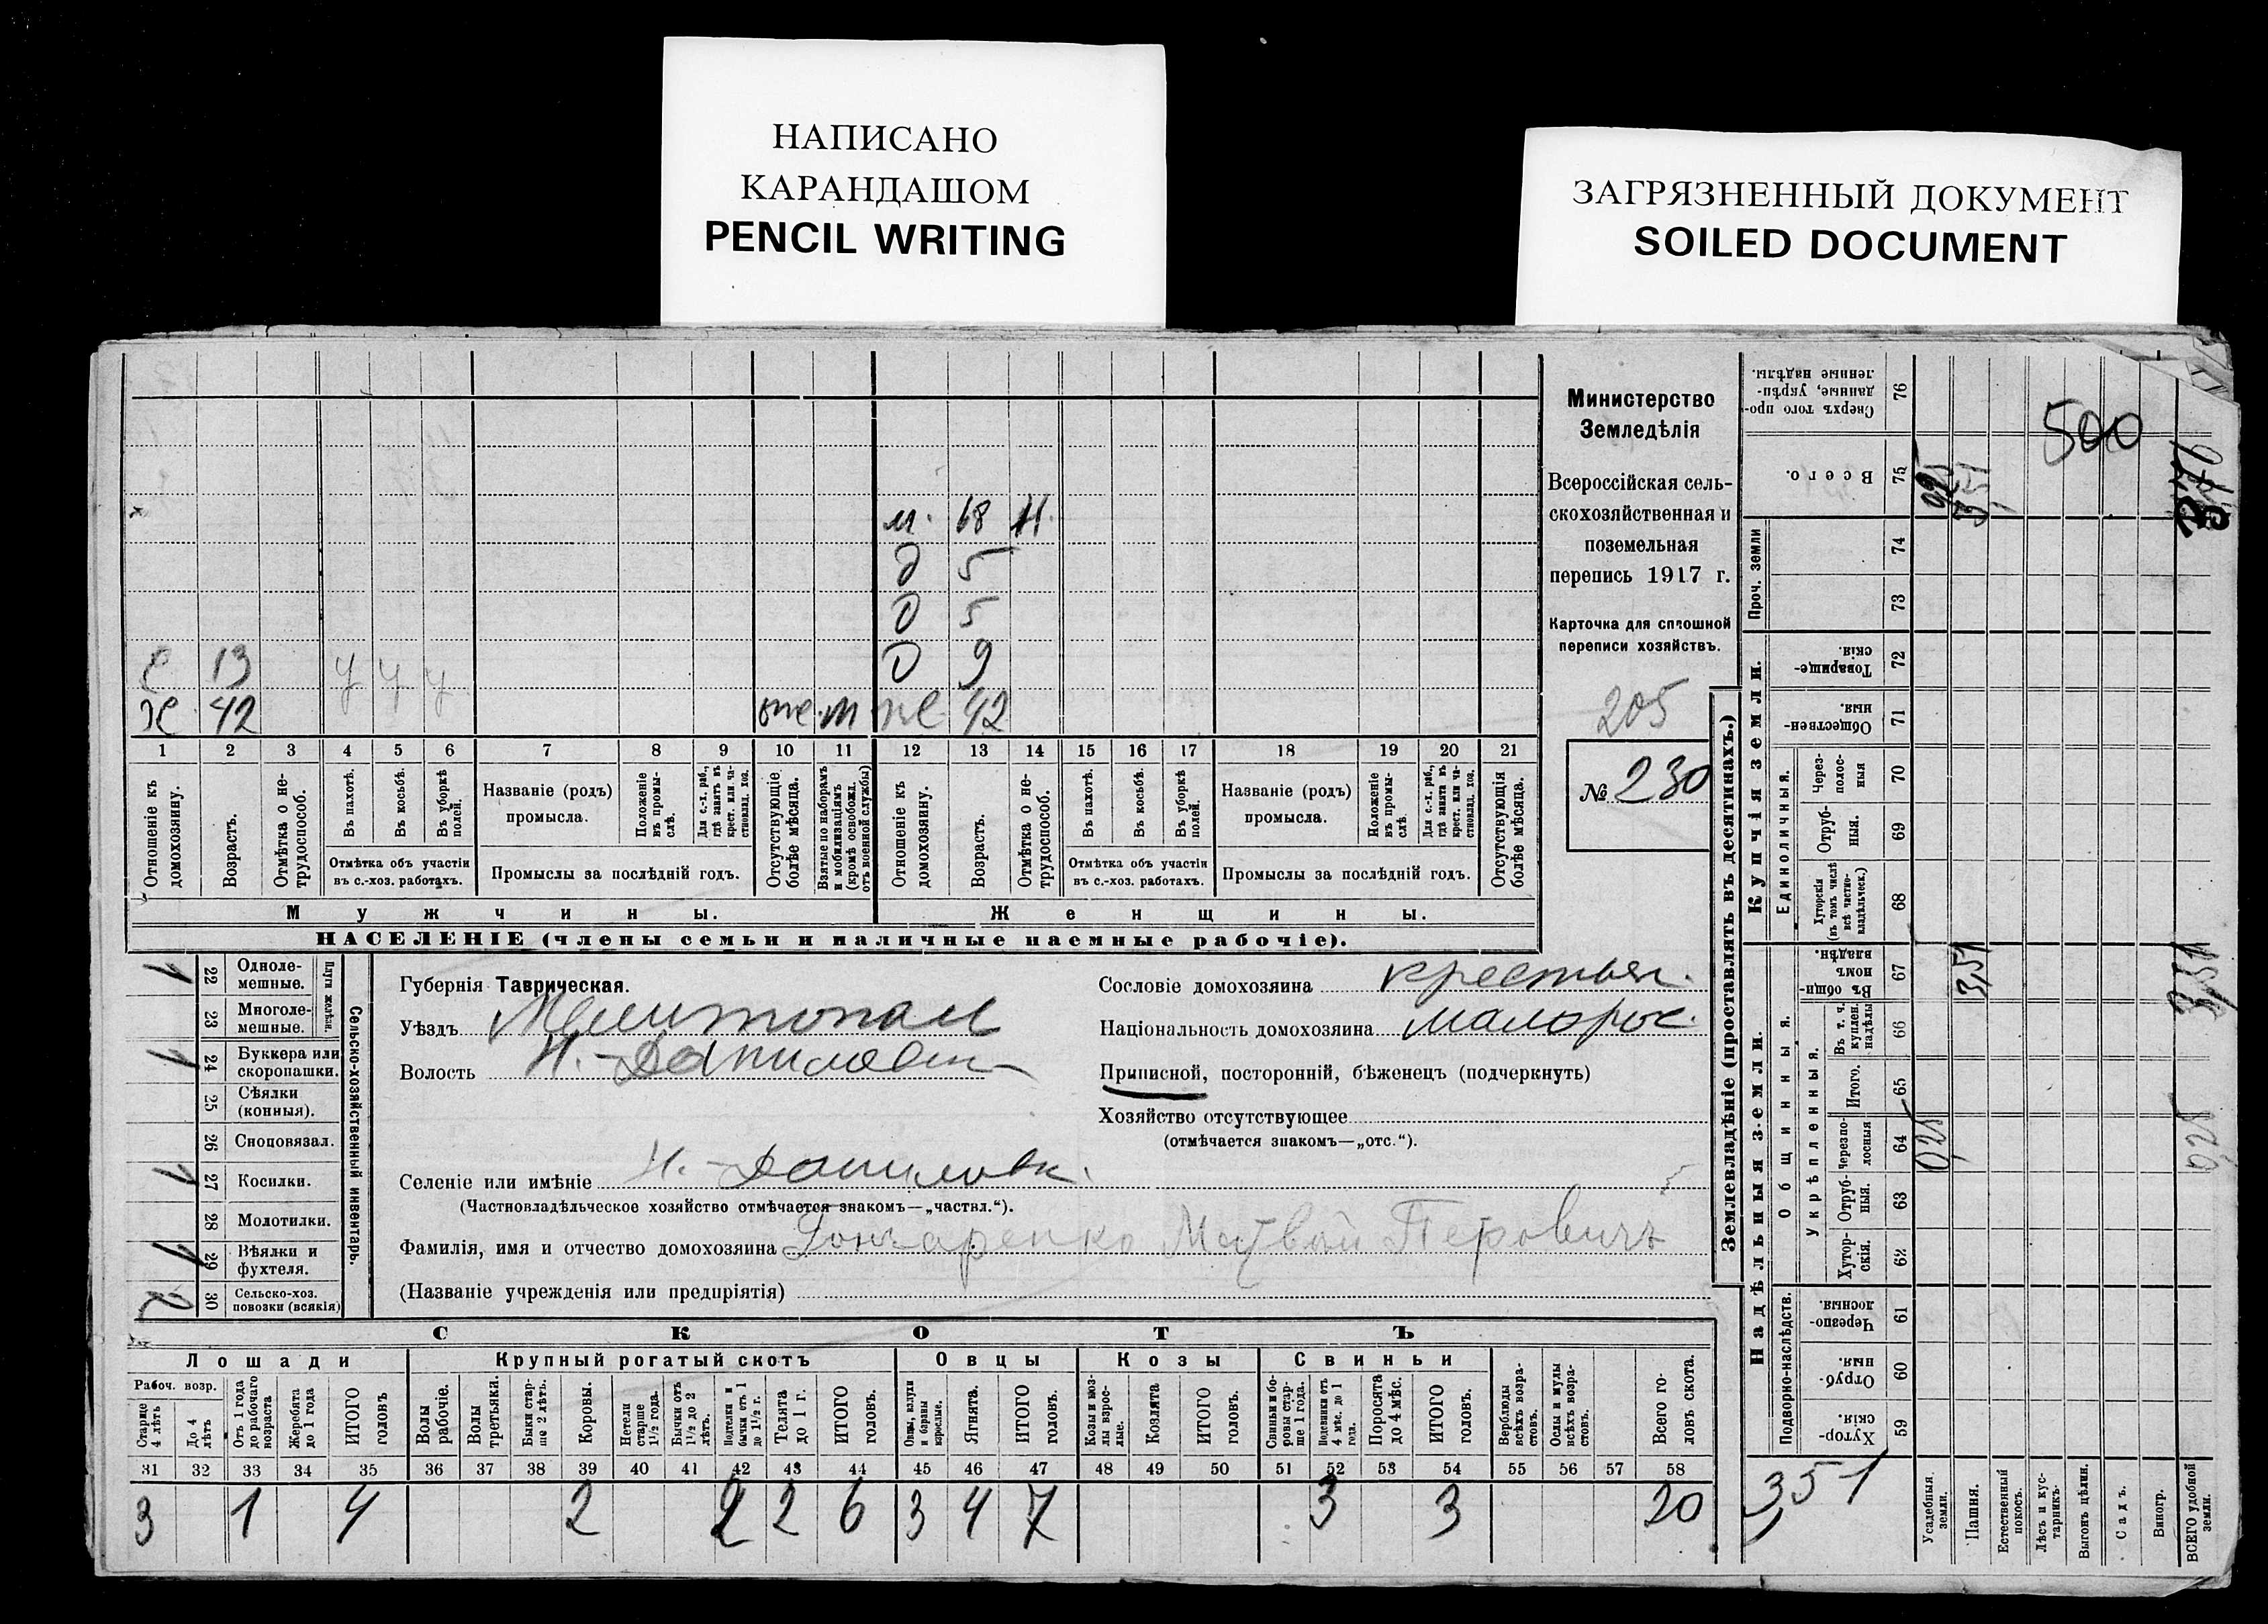 НАПИСАНО
КАРАНДАШОМ
PENCIL WRITING
ЗАГРЯЗНЕННЫЙ ДОКУМЕНТ
SOILED DOCUMENT
м. 68 Н.
д 5
д 5
с 13 у у у д 9
х. 42 оне. м же 42
1 2 3 4 5 6 7 8 9 10 11 12 13 14 15 16 17 18 19 20 21
Отношеніе къ домохозяину.
Возрастъ.
Отмѣтка о нетрудоспособ.
Въ пахотѣ.
Въ косьбѣ.
Въ уборкѣ полей.
Отмѣтка объ участіи въ с.-хоз. работахъ.
Названіе (родъ) промысла.
Положеніе въ промыслѣ.
Для с.-х. раб., гдѣ занятъ въ крест. или частновлад. хоз.
Промыслы за послѣдній годъ.
Отсутствующіе болѣе мѣсяца.
Взятые по наборамъ и мобилизаціямъ (кромѣ освобожд. отъ военной службы)
Отношеніе къ домохозяину.
Возрастъ.
Отмѣтка о нетрудоспособ.
Въ пахотѣ.
Въ косьбѣ.
Въ уборкѣ полей.
Отмѣтка объ участіи въ с.-хоз. работахъ.
Названіе (родъ) промысла.
Положеніе въ промыслѣ.
Для с.-х. раб., гдѣ занята въ крест. или частновлад. хоз.
Промыслы за послѣдній годъ.
Отсутствующія болѣе мѣсяца.
Мужчины.
Женщины.
НАСЕЛЕНІЕ (члены семьи и наличные наемные рабочіе).
Министерство
Земледѣлія
Всероссійская сель-
скохозяйственная и
поземельная
перепись 1917 г.
Карточка для сплошной
переписи хозяйствъ.
205
№ 230
1 22 Одноле-мешные.
23 Многоле-мешные.
Плуги желѣзн.
1 24 Буккера или скоропашки.
25 Сѣялки (конныя).
26 Сноповязал.
1 27 Косилки.
28 Молотилки.
1 29 Вѣялки и фухтеля.
2 30 Сельско-хоз. повозки (всякія)
Сельско-хозяйственный инвентарь.
Губернія Таврическая.
Уѣздъ Мелитопол
Волость Н.-Даниловск
Селеніе или имѣніе Н.-Даниловк.
(Частновладѣльческое хозяйство отмѣчается знакомъ—„частвл.“).
Фамилія, имя и отчество домохозяина Гончаренко Матвѣй Перовичъ
(Названіе учрежденія или предпріятія)
Сословіе домохозяина крестьян.
Національность домохозяина малорос.
Приписной, посторонній, бѣженецъ (подчеркнуть)
Хозяйство отсутствующее
(отмѣчается знакомъ—„отс.“).
СКОТЪ
Лошади
Крупный рогатый скотъ
Овцы
Козы
Свиньи
Рабоч. возр.
Старше 4 лѣтъ
До 4 лѣтъ
Отъ 1 года до рабочаго возраста
Жеребята до 1 года
ИТОГО головъ
Волы рабочіе.
Волы третьяки.
Быки старше 2 лѣтъ.
Коровы.
Нетели старше 1½ года.
Бычки отъ 1½ до 2 лѣтъ.
Подтелки и бычки отъ 1 до 1½ г.
Телята до 1 г.
ИТОГО головъ.
Овцы, валухи и бараны взрослые.
Ягнята.
ИТОГО головъ.
Козы и козлы взрослые.
Козлята
ИТОГО головъ.
Свиньи и боровы старше 1 года.
Подсвинки отъ 4 мѣс. до 1 года.
Поросята до 4 мѣс.
ИТОГО головъ.
Верблюды всѣхъ возрастовъ.
Ослы и мулы всѣхъ возрастовъ.
Всего головъ скота.
31 32 33 34 35 36 37 38 39 40 41 42 43 44 45 46 47 48 49 50 51 52 53 54 55 56 57 58
3 1 4 2 2 2 6 3 4 7 3 3 20
Землевладѣніе (проставлять въ десятинахъ.)
Купчія земли.
Надѣльныя земли.
Сверхъ того проданные, укрѣпленные надѣлы. 76
Всего. 75 025 3,51
500
Проч. земли 74 73
Товарищескія. 72
Общественныя. 71
Единоличныя.
Черезполосныя 70
Отрубныя. 69
Хуторскія (въ томъ числѣ всѣ частновладѣльческ.) 68
Общинныя.
Въ общинномъ владѣн. 67 3,51 3,51
Укрѣпленныя.
Въ т. ч. куплен. надѣлы 66
Итого. 65
Черезполосныя 64 0,25 0,25
Отрубныя. 63
Хуторскія. 62
Подворно-наслѣдств.
Черезполосныя 61
Отрубныя. 60
Хуторскія. 59
3,51
Усадебныя земли.
Пашня.
Естественный покосъ.
Лѣсъ и кустарникъ.
Выгонъ цѣлин.
Садъ.
Виногр.
ВСЕГО удобной земли.